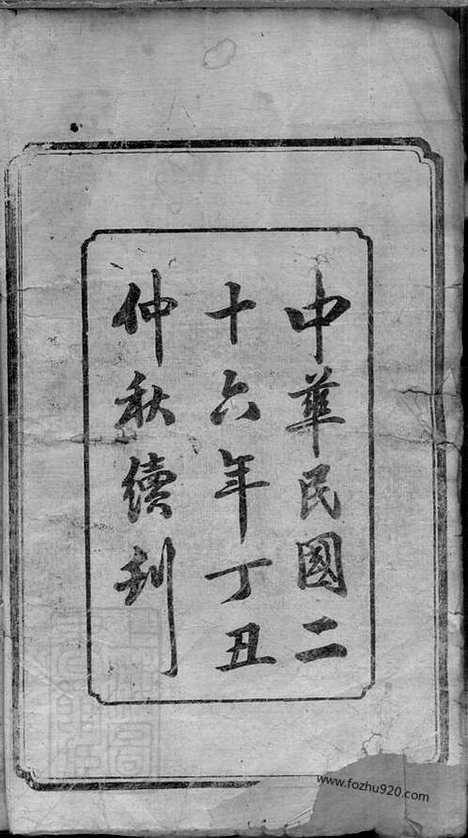 中華民國二
十六年丁丑
仲秋續刊
www.fozhu920.com